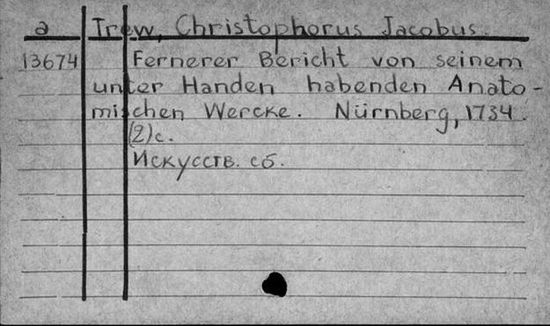 a Trew, Christophorus Jacobus.
13674 Fernerer Bericht von seinem
unter Handen habenden Anato-
mischen Wercke. Nürnberg, 1734.
(2)c.
Искусств. сб.